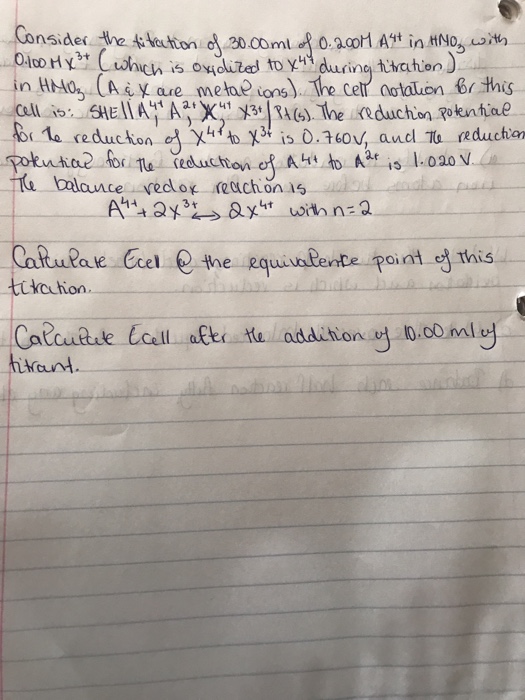 Consider the titration of 30.00ml of 0.200M A⁴⁺ in HNO₃ with
0.100 M X³⁺ (which is oxidized to X⁴⁺ during titration)
in HNO₃ (A & X are metal ions). The cell notation for this
cell is: SHE||A⁴⁺, A²⁺, X⁴⁺, X³⁺|Pt(s). The reduction potential
for the reduction of X⁴⁺ to X³⁺ is 0.760V, and The reduction
potential for the reduction of A⁴⁺ to A²⁺ is 1.020 V.
The balance redox reaction is
A⁴⁺ + 2X³⁺ ↔ 2X⁴⁺ with n=2
Calculate Ecel @ the equivalence point of this
titration.
Calculate Ecell after the addition of 10.00 ml of
titrant.